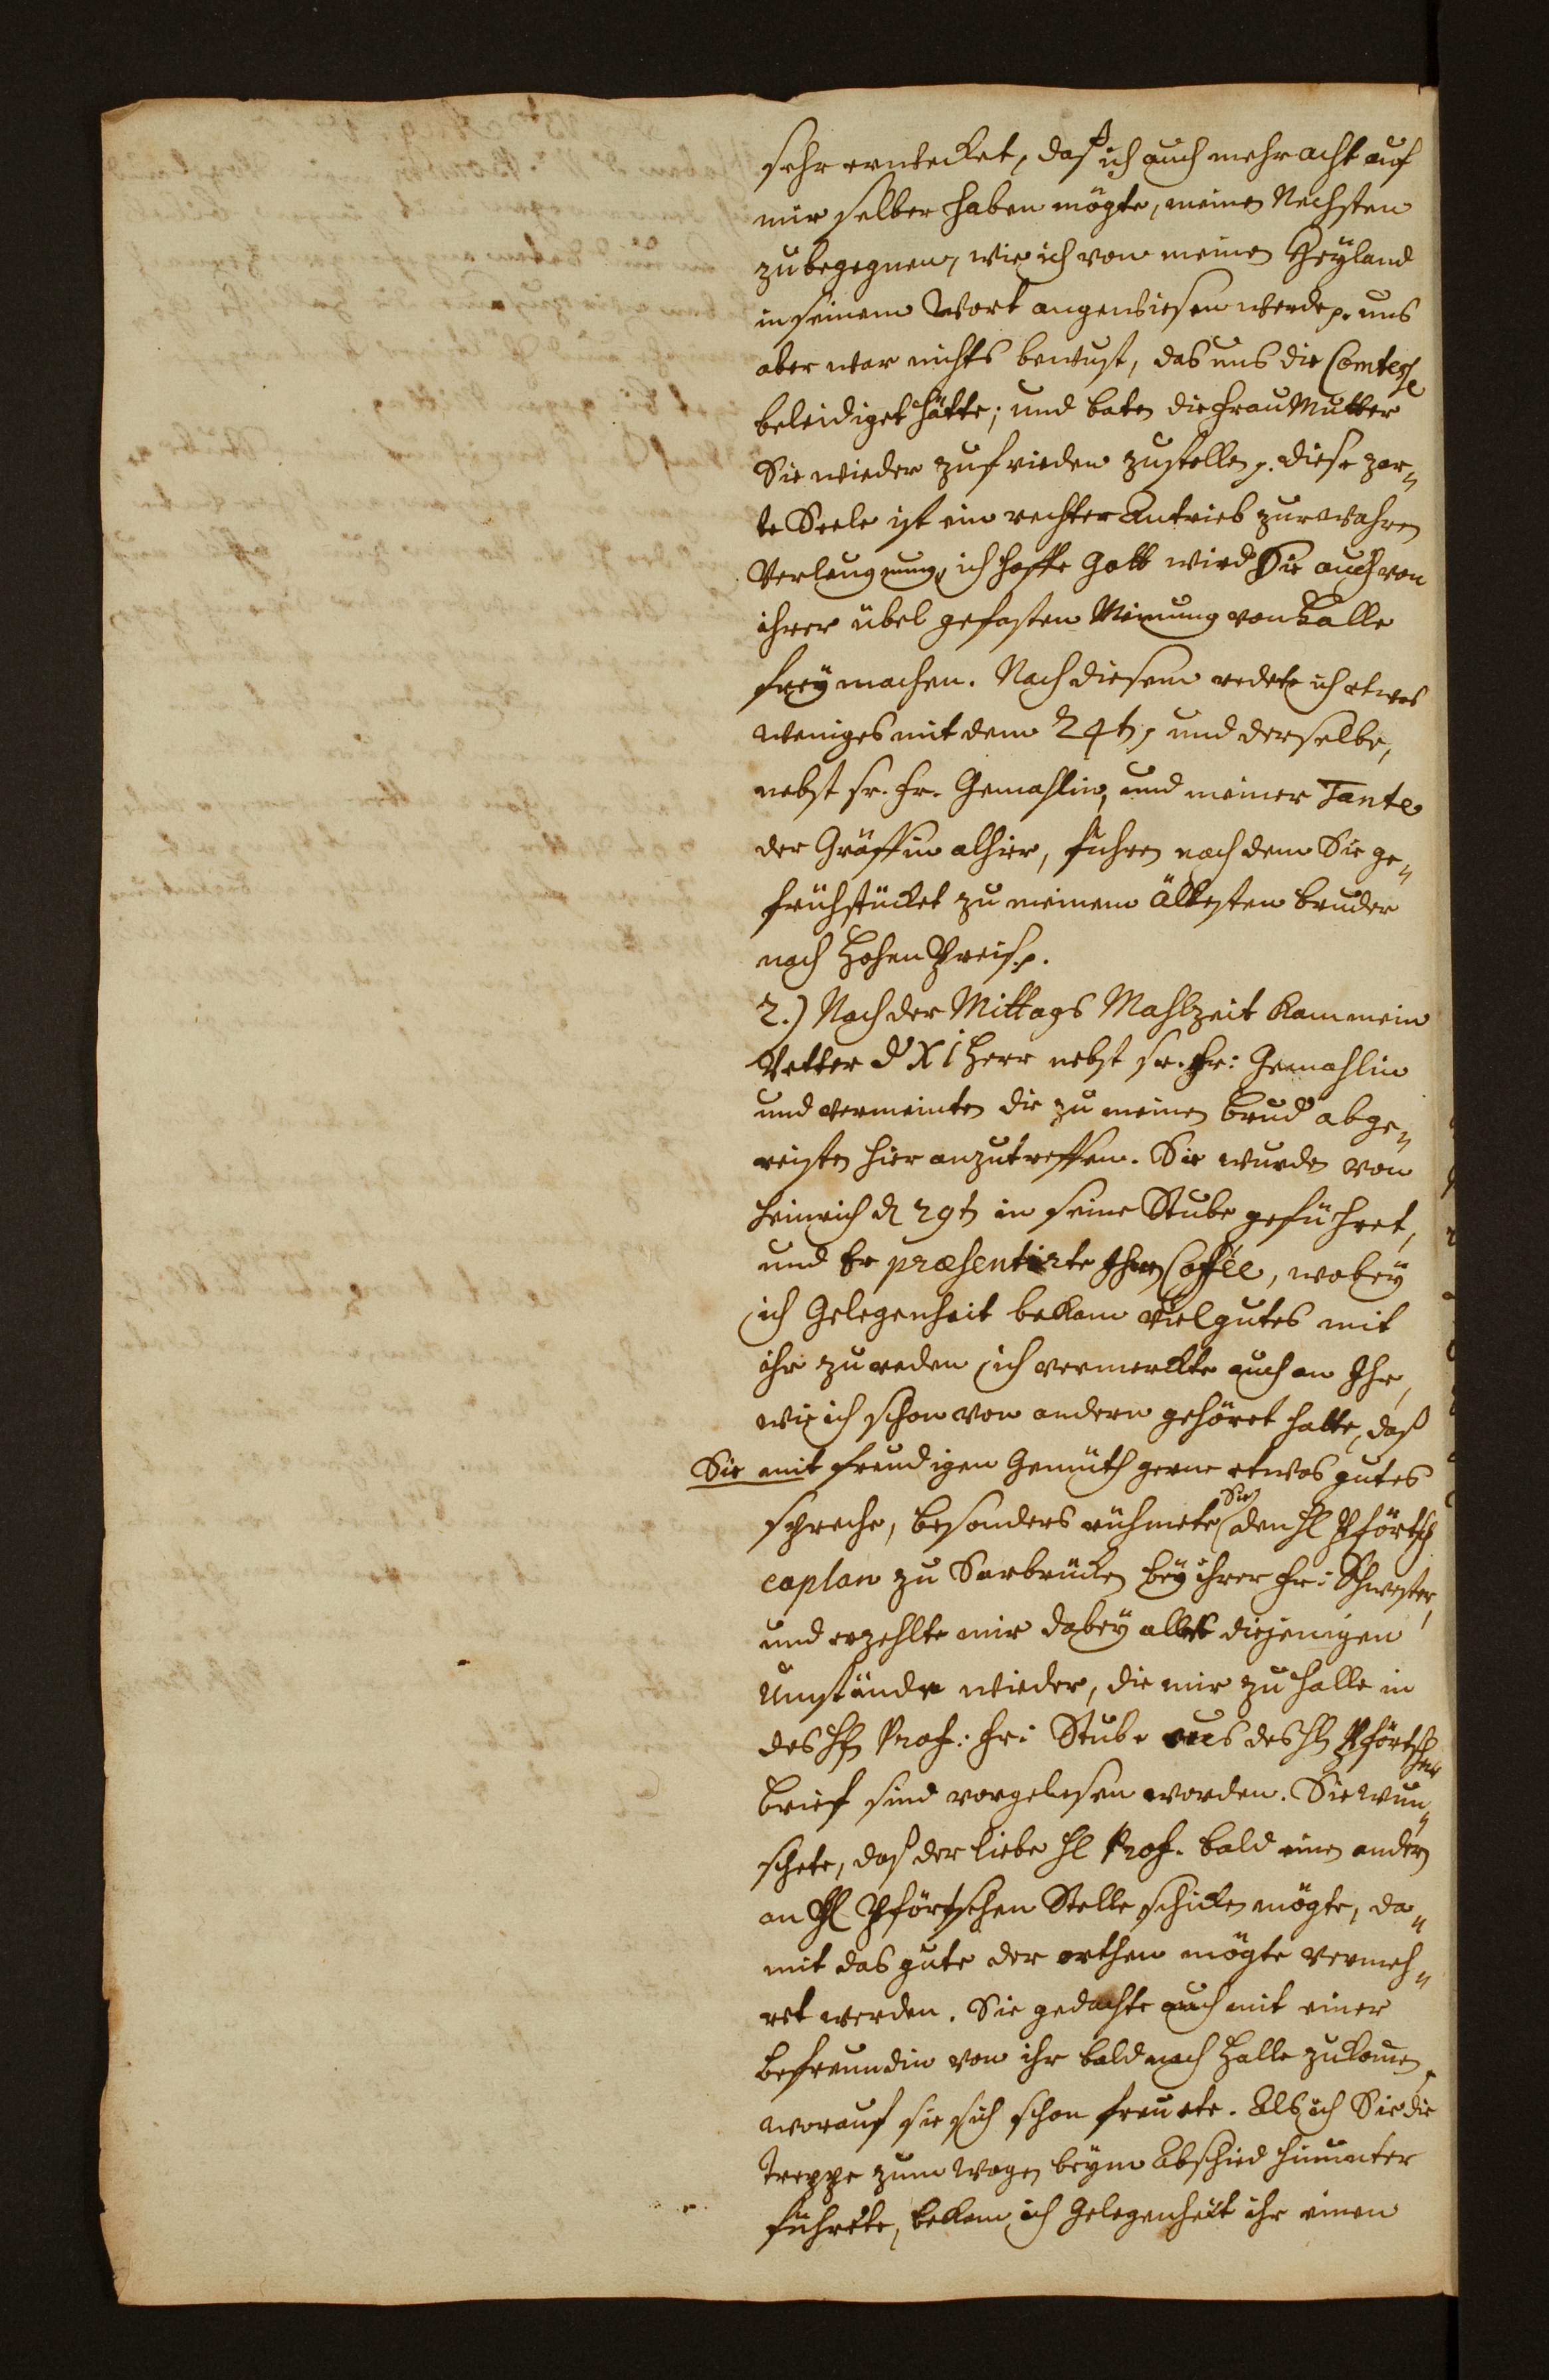 sehr erwecket, daß ich auch mehr acht auf
mir selber haben mögte, meinen Nechsten
zubegegnen, wie ich von meinen Heyland
in seinem Wort angewiesen werde p. uns
aber war nichts bewust, das uns die Comtesse
beleidiget hätte; und baten die Frau Mutter
Sie wieder zufrieden zustellen p. diese zar„
te Seele ist ein rechter Antrieb zur wahren
Verleugnung, ich hoffe Gott wird Sie auch von
ihrer übel gefasten Meinung von Halle
frey machen. Nach diesem redete ich etwas
weniges mit dem 24t, und derselbe,
nebst sr. Fr. Gemahlin, und meiner Tante
der Gräffin alhier, fuhren nach dem Sie ge„
frühstücket zu meinem ältesten Bruder
nach Hohen Preiß. p.
2.) Nach der Mittags Mahlzeit kam mein
Vetter d XI Herr nebst sr. Fr: Gemahlin
und vermeinten die zu meinen Brud abge„
reisten hier anzutreffen. Sie wurden von
Heinrich d 29t in seine Stube geführet,
und Er præsentirte Ihnen Coffée, wobey
ich Gelegenheit bekam viel gutes mit
ihr zu reden, ich vermerckte auch an Ihr,
wie ich schon von andern gehöret hatte, daß
Sie mit freudigen Gemüth gerne etwas gutes
spreche, besonders rühmete Sie den Hl Pförtsch
caplan zu Sarbrücken bey ihrer Fr: Schwester,
und erzehlte mir dabey alles diejenigen
Umstände wieder, die mir zu Halle in
des Hln Prof: Fr: Stube aus des Hln Pförtschen
Brief sind vorgelesen worden. Sie wün„
schete, daß der liebe Hl Prof. bald einen andern
an Hl Pförtschen Stelle schicken mögte, da„
mit das gute der orthen mögte vermeh„
ret werden. Sie gedachte auch mit einer
Befreundin von ihr bald nach Halle zukomen,
worauf sie sich schon freuete. Als ich Sie die
Treppe zum Wagen beym Abschied hinunter
führete, bekam ich Gelegenheit ihr einen